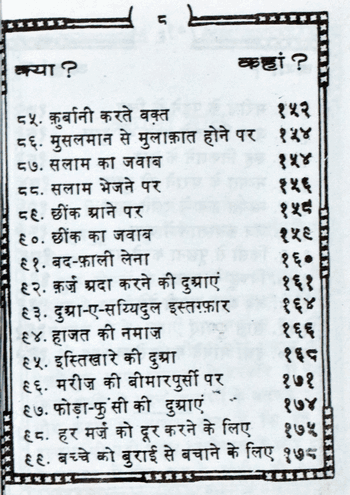 ८
क्या ? कहां ?
८५. क़ुर्बानी करते वक़्त १५२
८६. मुसलमान से मुलाक़ात होने पर १५४
८७. सलाम का जवाब १५४
८८. सलाम भेजने पर १५६
८९. छींक आने पर १५८
९०. छींक का जवाब १५९
९१. बद-फ़ाली लेना १६०
९२. क़र्ज़ अदा करने की दुआएं १६१
९३. दुआ-ए-सय्यिदुल इस्तग़्फ़ार १६४
९४. हाजत की नमाज़ १६६
९५. इस्तिख़ारे की दुआ १६८
९६. मरीज़ की बीमारपुर्सी पर १७१
९७. फोड़ा-फुंसी की दुआएं १७४
९८. हर मर्ज़ को दूर करने के लिए १७५
९९. बच्चे को बुराई से बचाने के लिए १७८